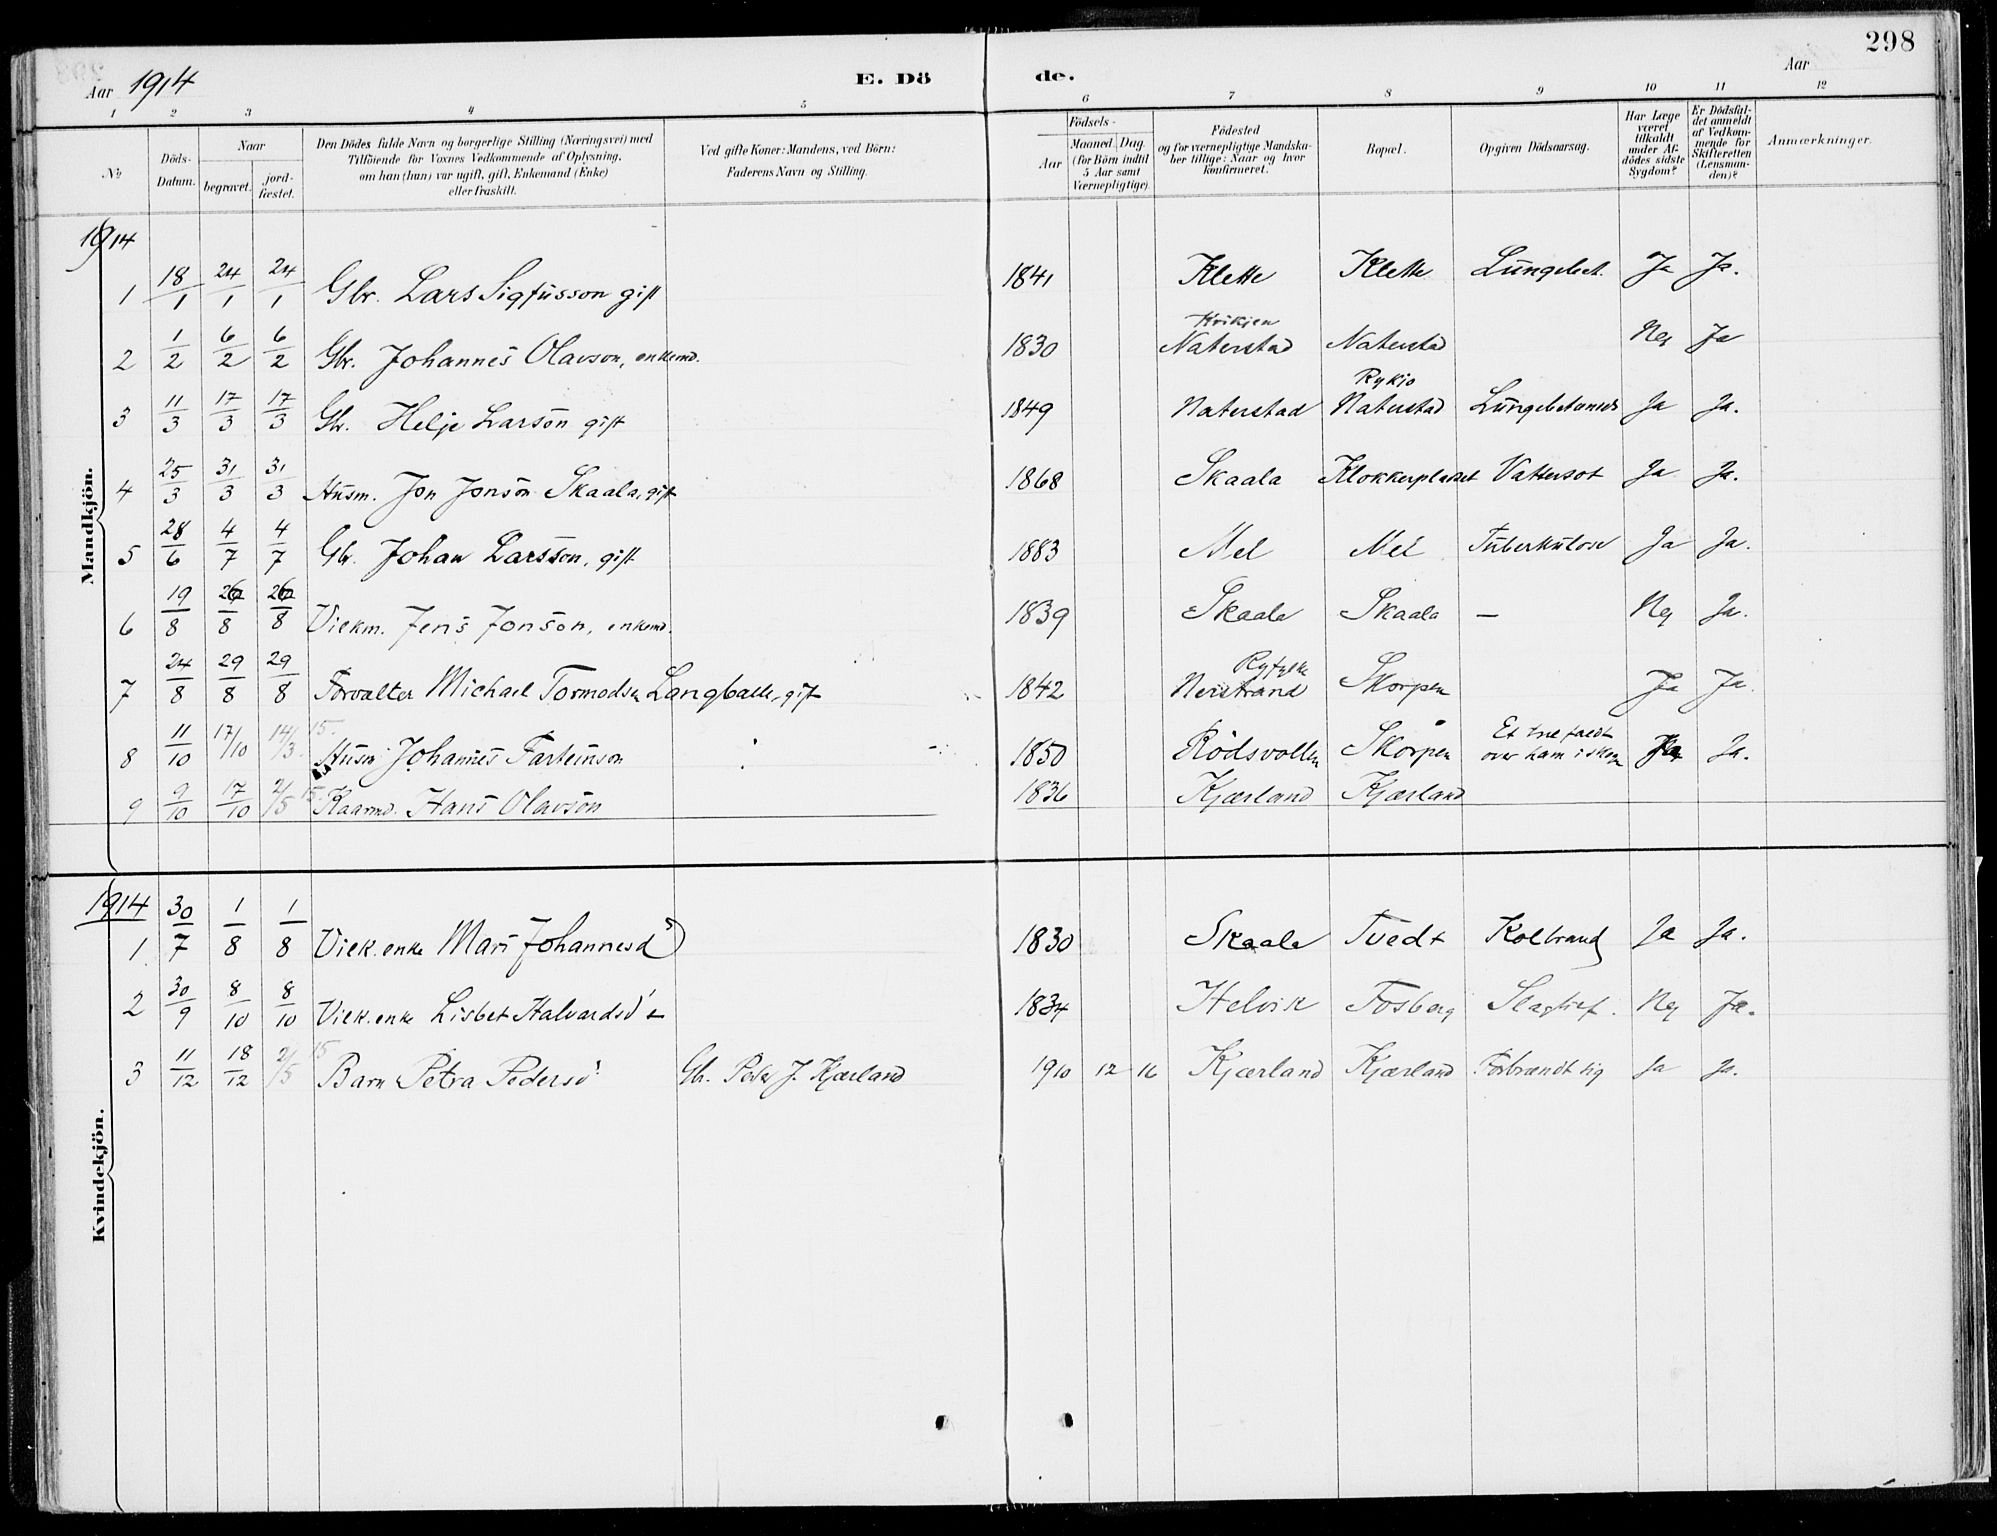 298
Aar 1914 E. Dö de. Aar
1 2 3 4 5 6 7 8 9 10 11 12
No
Döds-Datum.
Naar
begravet.
jord-fæstet.
Den Dödes fulde Navn og borgerlige Stilling (Næringsvei) med
Tilföiende for Voxnes Vedkommende af Oplysning,
om han (hun) var ugift, gift, Enkemand (Enke)
eller fraskilt.
Ved gifte Koner: Mandens, ved Börn:
Faderens Navn og Stilling.
Födsels-
Aar
Maaned. Dag.
(for Börn indtil
5 Aar samt
Værnepligtige)
Födested
og for værnepligtige Mandska-
ber tillige: Naar og hvor
konfirmeret.
Bopæl.
Opgiven Dödsaarsag.
Har Læge
været
tilkaldt
under Af-
dödes sidste
Sygdom?
Er Dödsfal-
det anmeldt
af Vedkom-
mende for
Skifteretten
(Lensman-
den)?
Anmærkninger.
Mandkjön.
1914
1 18/1 24/1 24/1 Gbr. Lars Sigfusson gift 1841 Klette Klette Lungebet. Ja Ja.
2 1/2 6/2 6/2 Gbr. Johannes Olavson, enkemd. 1830 Kvikjen Naterstad Naterstad Nej Ja
3 11/3 17/3 17/3 Gbr. Helje Larson gift 1849 Naterstad Rykjo Naterstad Lungebetænds Ja Ja.
4 25/3 31/3 31/3 Husm. Jon Jonson Skaala, gift 1868 Skaala Klokkerpladset Vattersot Ja Ja.
5 28/6 4/7 4/7 Gbr. Johan Larsson, gift 1883 Mel Mel Tuberkulose Ja Ja.
6 19/8 26/8 26/8 Vilkm. Jens Jonson, enkemd. 1839 Skaala Skaala — Nej Ja.
7 24/8 29/8 29/8 Forvalter Michael Tormodsen Langballe, gift 1842 Ryfylke Nerstrand Skorpen Ja Ja.
8 11/10 17/10 14/3 15. Husm Johannes Farteinson 1850 Rödsvollen Skorpen Et træ faldt over ham i skogen Ja.
9 9/10 17/10 2/5 15. Kaarmd. Hans Olavson 1836 Kjærland Kjærland
Kvindekjön.
1914
1 30/7 1/8 1/8 Vilk. enke Mari Johannesd 1830 Skaala Tvedt Kolbrand Ja Ja.
2 30/9 8/10 8/10 Vilk. enke Lisbet Halvardsd 1834 Helvik Fosberg Slagtilf. Nej Ja.
3 11/12 18/12 2/5 15 Barn Petra Pedersd Gbr. Peder J. Kjærland 1910 12 16 Kjærland Kjærland Forbrændt sig Ja Ja.